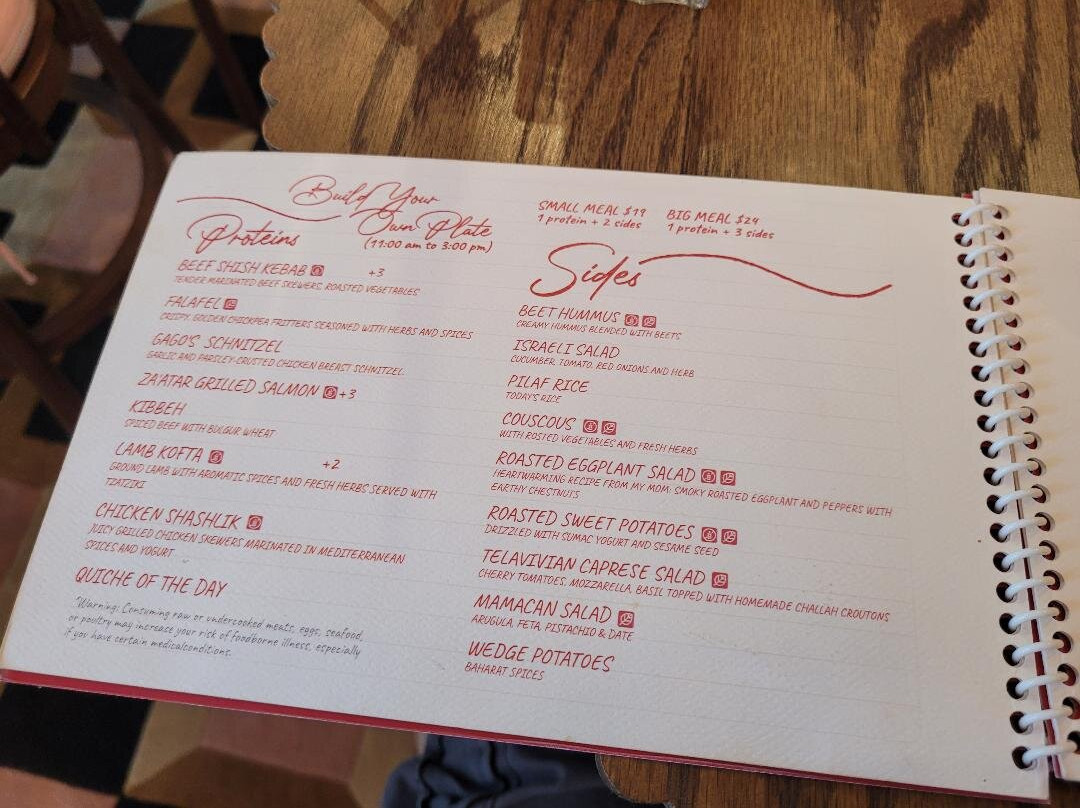 Build Your
Own Plate
(11:00 am to 3:00 pm)
SMALL MEAL $19
1 protein + 2 sides
BIG MEAL $24
1 protein + 3 sides
Proteins
BEEF SHISH KEBAB +3
TENDER MARINATED BEEF SKEWERS, ROASTED VEGETABLES
FALAFEL
CRISPY, GOLDEN CHICKPEA FRITTERS SEASONED WITH HERBS AND SPICES
GAGO'S SCHNITZEL
GARLIC AND PARSLEY-CRUTTED CHICKEN BREAST SCHNITZEL
ZA'ATAR GRILLED SALMON +3
KIBBEH
SPICED BEEF WITH BULGUR WHEAT
LAMB KOFTA +2
GROUND LAMB WITH AROMATIC SPICES AND FRESH HERBS SERVED WITH
TZATZIKI
CHICKEN SHASHLIK
JUICY GRILLED CHICKEN SKEWERS MARINATED IN MEDITERRANEAN
SPICES AND YOGURT
QUICHE OF THE DAY
"Warning: Consuming raw or undercooked meats, eggs, seafood,
or poultry may increase your risk of foodborne illness, especially
if you have certain medicalconditions.
Sides
BEET HUMMUS
CREAMY HUMMUS BLENDED WITH BEETS
ISRAELI SALAD
CUCUMBER, TOMATO, RED ONIONS AND HERB
PILAF RICE
TODAY'S RICE
COUSCOUS
WITH ROSTED VEGETABLES AND FRESH HERBS
ROASTED EGGPLANT SALAD
HEARTWARMING RECIPE FROM MY MOM: SMOKY ROASTED EGGPLANT AND PEPPERS WITH
EARTHY CHESTNUTS
ROASTED SWEET POTATOES
DRIZZLED WITH SUMAC YOGURT AND SESAME SEED
TELAVIVIAN CAPRESE SALAD
CHERRY TOMATOES, MOZZARELLA, BASIL TOPPED WITH HOMEMADE CHALLAH CROUTONS
MAMACAN SALAD
ARUGULA, FETA, PISTACHIO & DATE
WEDGE POTATOES
BAHARAT SPICES